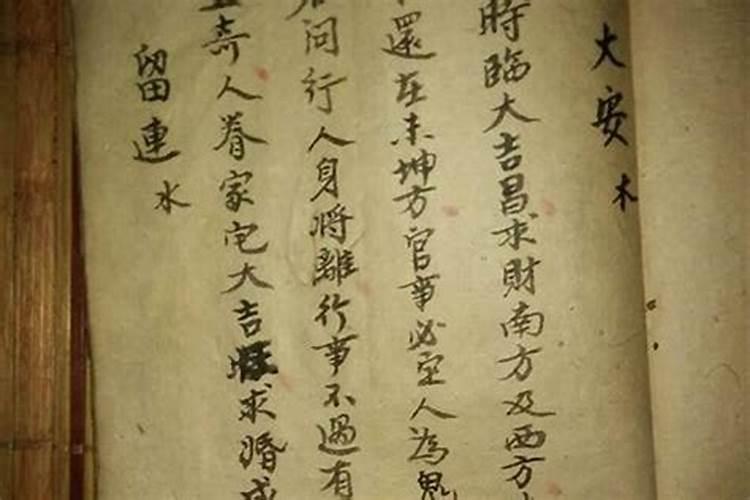 大安 木
時臨大吉昌求財南方及西方
還在未坤方官事必空人為鬼
問行人身將離行事不過有
奇人眷家宅大吉旺求婚成
留連 水